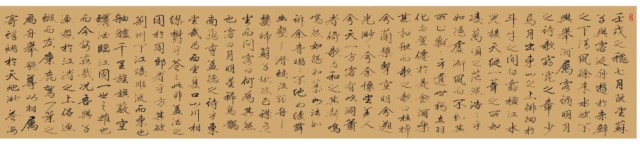 壬戌之秋七月既望蘇
子與客泛舟遊於赤壁
之下清風徐來水波不
興舉酒屬客誦明月
之詩歌窈窕之章少
焉月出於東山之上徘徊於
斗牛之間白露橫江水
光接天縱一葦之所如
凌萬頃之茫然浩浩乎
如馮虛御風而不知其
所止飄飄乎如遺世獨立羽
化而登僊於是飲酒樂
甚扣舷而歌之歌曰桂棹
兮蘭槳擊空明兮泝
流光渺渺兮余懷望美人
兮天一方客有吹洞簫
者倚歌而和之其聲嗚
嗚然如怨如慕如泣如
訴余音嫋嫋不絕如縷舞
幽壑之潛蛟泣孤舟之
嫠婦蘇子愀然正襟危
坐而問客曰何為其然
也客曰月明星稀烏鵲
南飛此非孟德之詩乎東
望武昌山川相
繆鬱乎蒼蒼此非孟德之
困於周郎者乎方其破
荊州下江陵順流而東也
舳艫千里旌旗蔽空
釃酒臨江固一世之雄也
而今安在哉況吾與子
漁樵於江渚之上侶魚
而友麋鹿駕一葉之
扁舟舉匏樽以相屬
寄蜉蝣於天地渺滄海